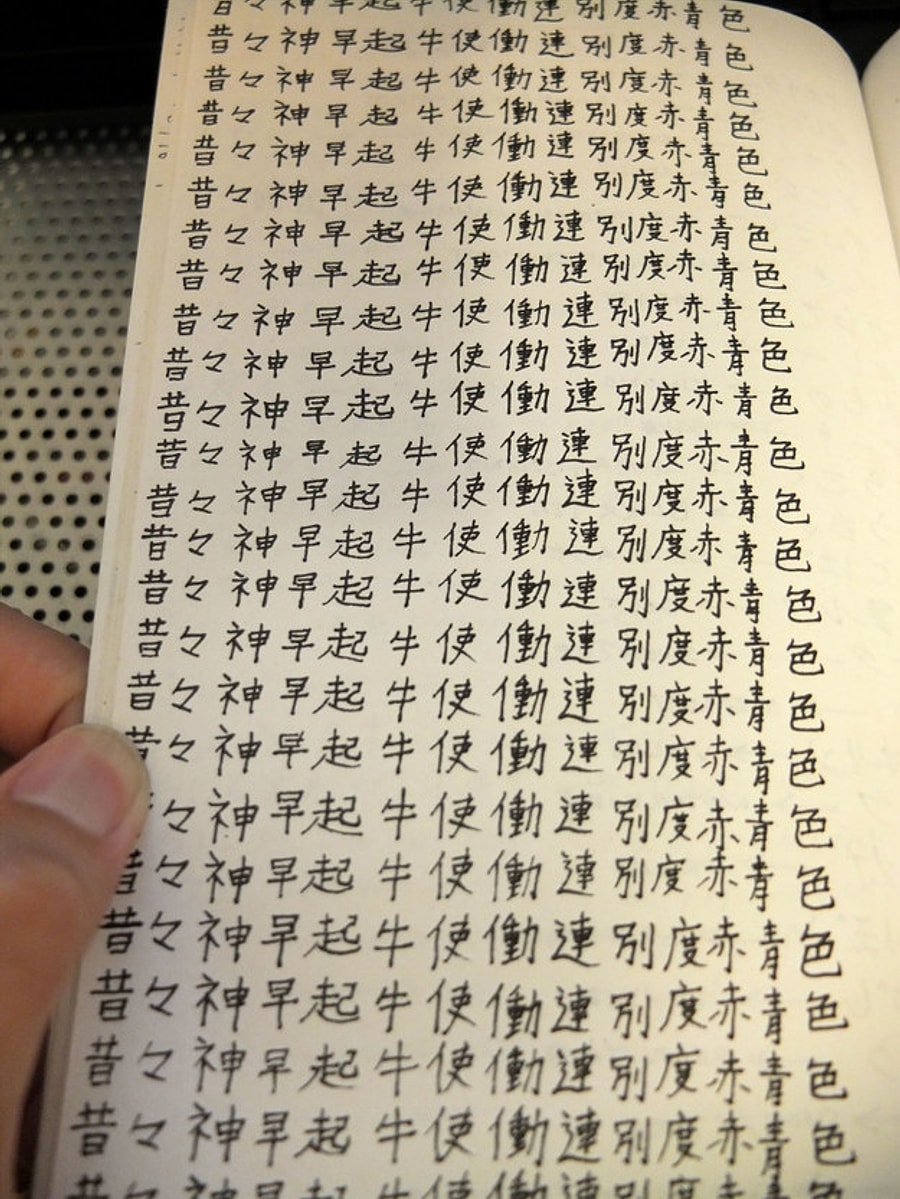 昔々神早起牛使働連別度赤青色
昔々神早起牛使働連別度赤青色
昔々神早起牛使働連別度赤青色
昔々神早起牛使働連別度赤青色
昔々神早起牛使働連別度赤青色
昔々神早起牛使働連別度赤青色
昔々神早起牛使働連別度赤青色
昔々神早起牛使働連別度赤青色
昔々神早起牛使働連別度赤青色
昔々神早起牛使働連別度赤青色
昔々神早起牛使働連別度赤青色
昔々神早起牛使働連別度赤青色
昔々神早起牛使働連別度赤青色
昔々神早起牛使働連別度赤青色
昔々神早起牛使働連別度赤青色
昔々神早起牛使働連別度赤青色
昔々神早起牛使働連別度赤青色
昔々神早起牛使働連別度赤青色
々神早起牛使働連別度赤青色
昔々神早起牛使働連別度赤青色
昔々神早起牛使働連別度赤青色
昔々神早起牛使働連別度赤青色
昔々神早起牛使働連別度赤青色
昔々神早起牛使働連別度赤青色